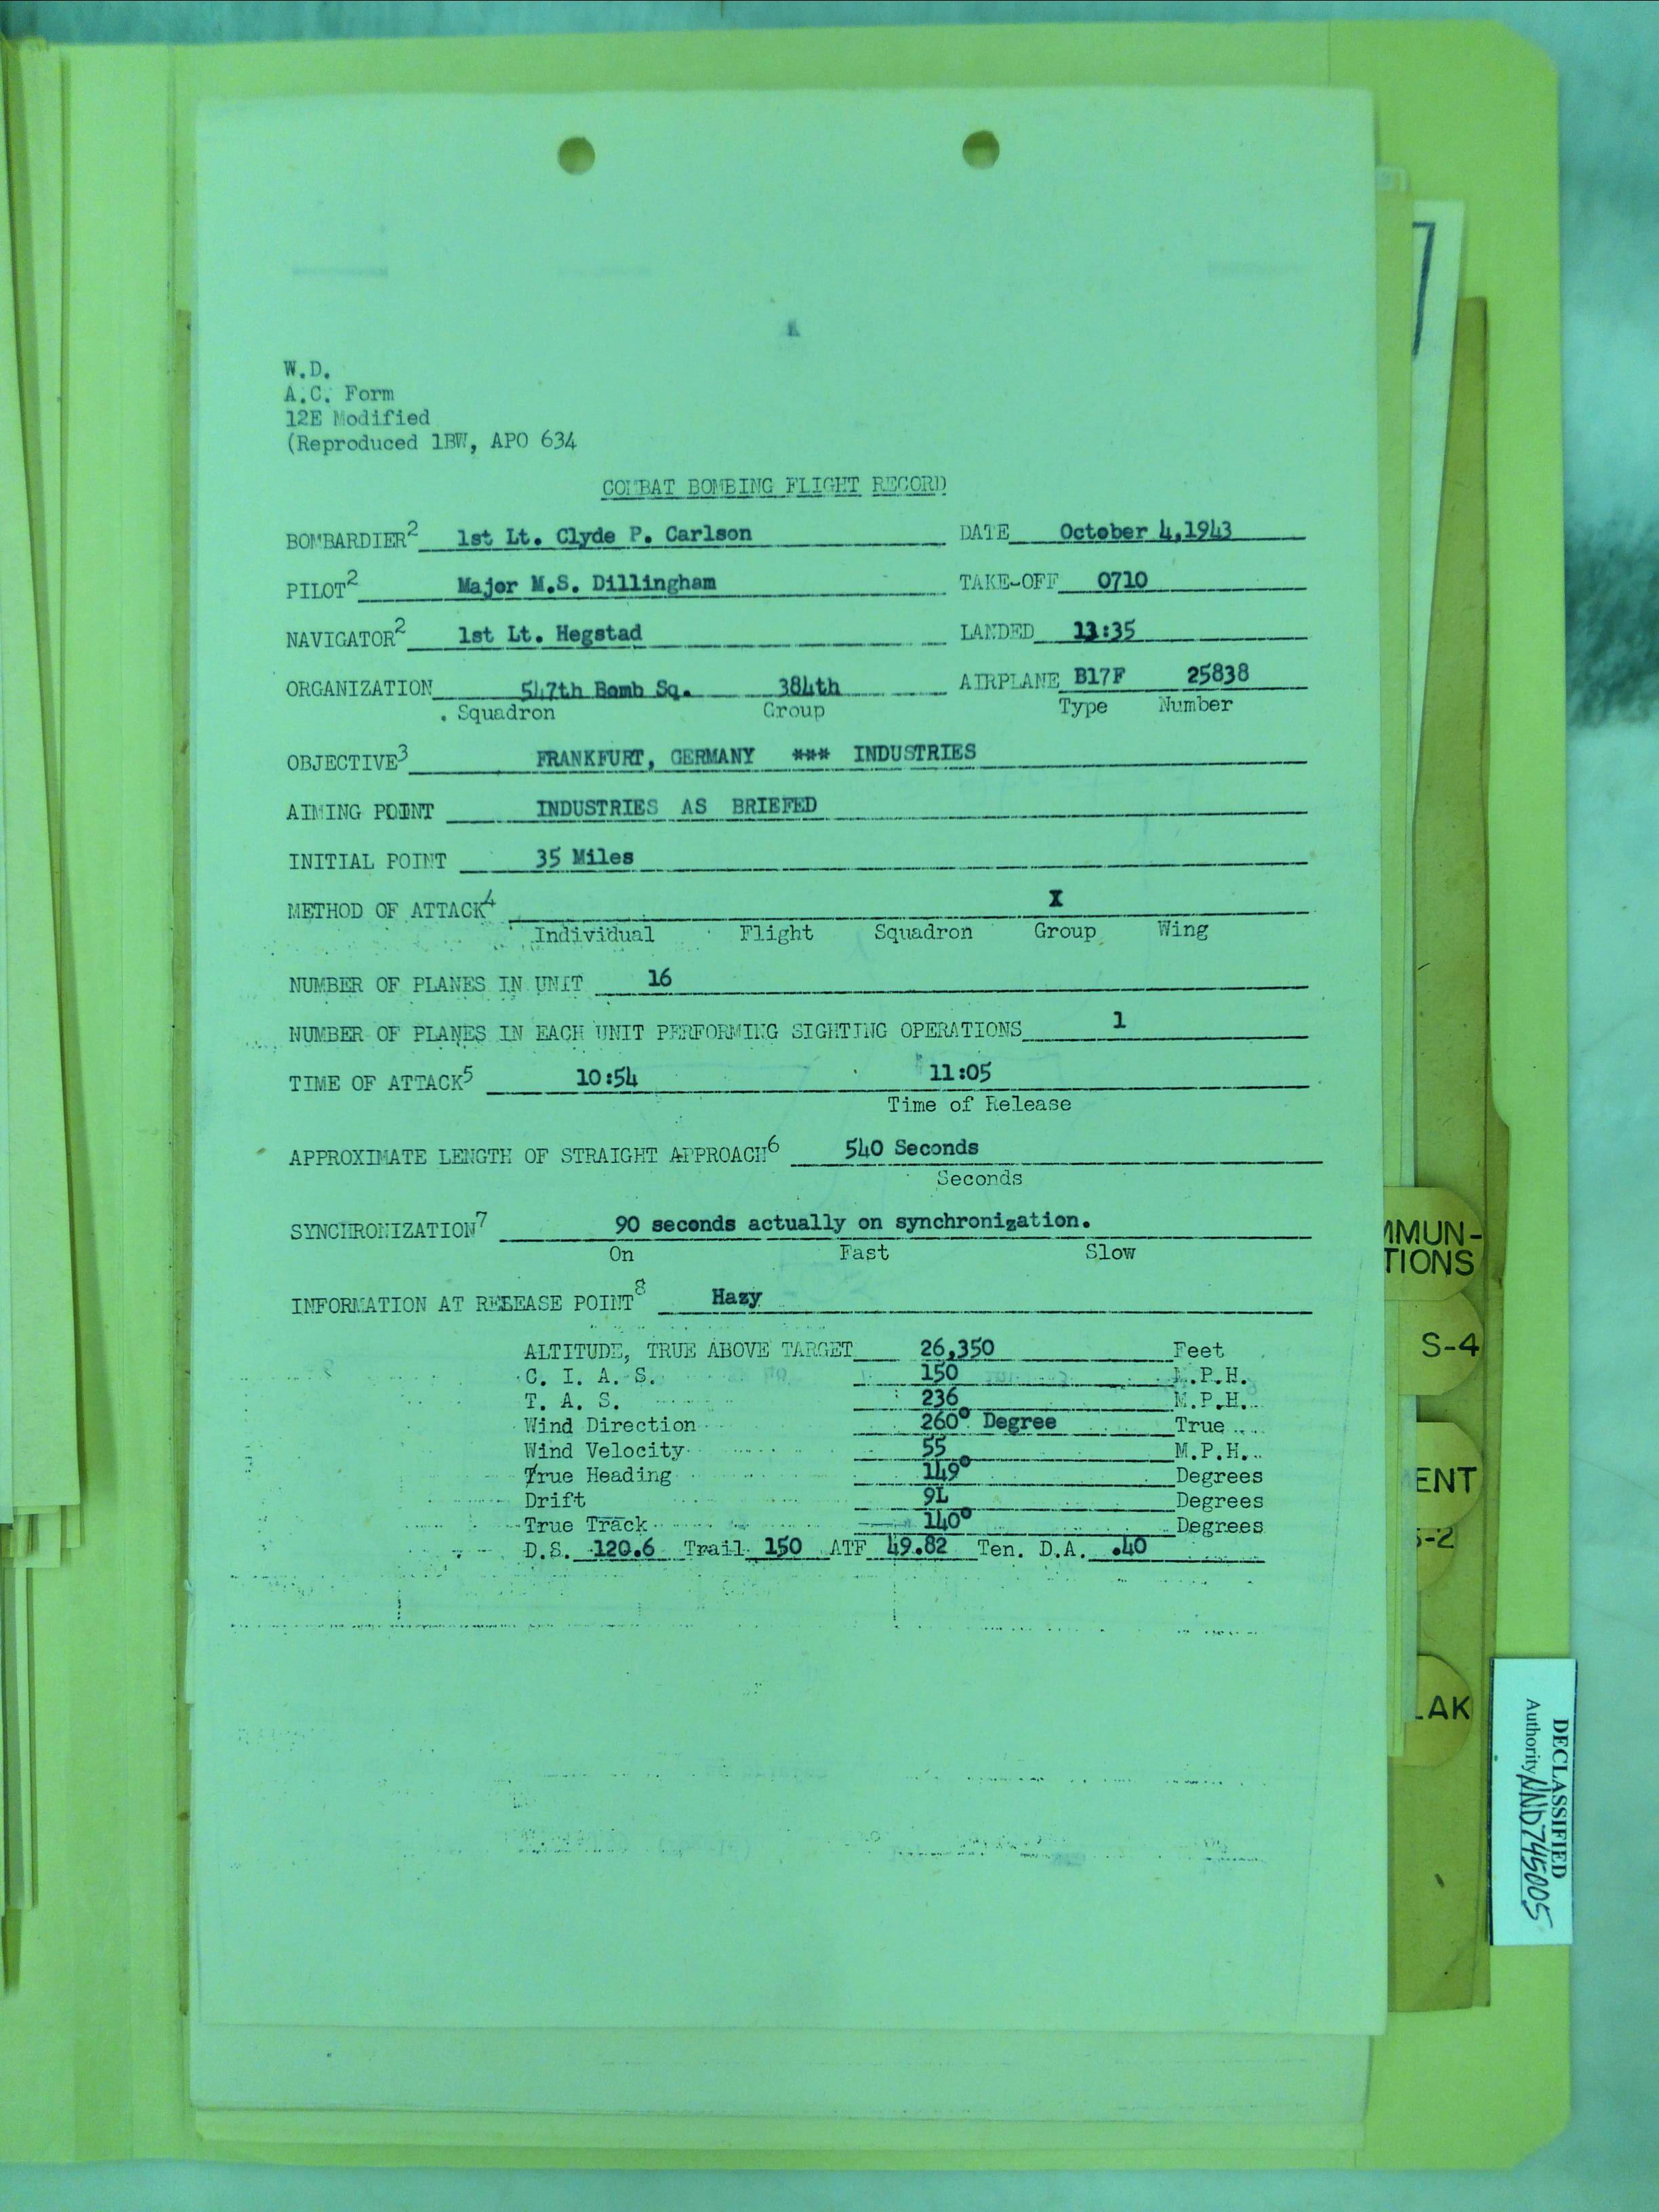 W.D.
A.C. Form
12E Modified
(Reproduced 1BW, APO 634
COMBAT BOMBING FLIGHT RECORD
BOMBARDIER2 1st Lt. Clyde P. Carlson DATE October 4,1943
PILOT2 Major M.S. Dillingham TAKE-OFF 0710
NAVIGATOR2 1st Lt. Hegstad LANDED 13:35
ORGANIZATION 547th Bomb Sq. 384th AIRPLANE B17F 25838
Squadron Group Type Number
OBJECTIVE3 FRANKFURT, GERMANY *** INDUSTRIES
AIMING POINT INDUSTRIES AS BRIEFED
INITIAL POINT 35 Miles
METHOD OF ATTACK4 X
Individual Flight Squadron Group Wing
NUMBER OF PLANES IN UNIT 16
NUMBER OF PLANES IN EACH UNIT PERFORMING SIGHTING OPERATIONS 1
TIME OF ATTACK5 10:54 11:05
Time of Release
APPROXIMATE LENGTH OF STRAIGHT APPROACH6 540 Seconds
Seconds
SYNCHRONIZATION7 90 seconds actually on synchronization.
On Fast Slow
INFORMATION AT RELEASE POINT8 Hazy
ALTITUDE, TRUE ABOVE TARGET 26,350 Feet
C. I. A. S. 150 M.P.H.
T. A. S. 236 M.P.H.
Wind Direction 260° Degree True
Wind Velocity 55 M.P.H.
True Heading 149° Degrees
Drift 9L Degrees
True Track 140° Degrees
D.S. 120.6 Trail 150 ATF 49.82 Ten. D.A. .40
MMUN-
TIONS
S-4
ENT
S-2
LAK
DECLASSIFIED
Authority NND745005